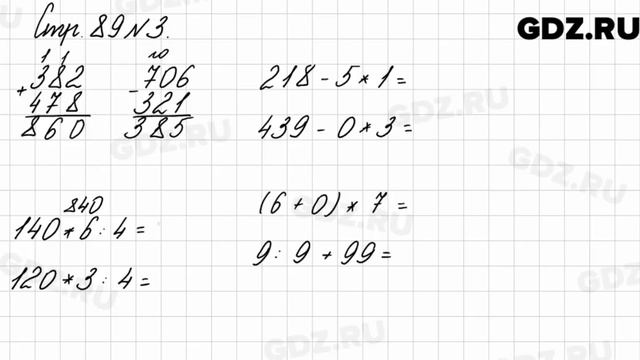 Стр. 89 № 3.
GDZ.RU
1 1
382
+
478
860
10
706
-
321
385
218 - 5 * 1 =
439 - 0 * 3 =
840
140 * 6 : 4 =
120 * 3 : 4 =
(6 + 0) * 7 =
9 : 9 + 99 =
GDZ.RU
GDZ.RU
GDZ.RU
GDZ.RU
GDZ.RU
GDZ.RU